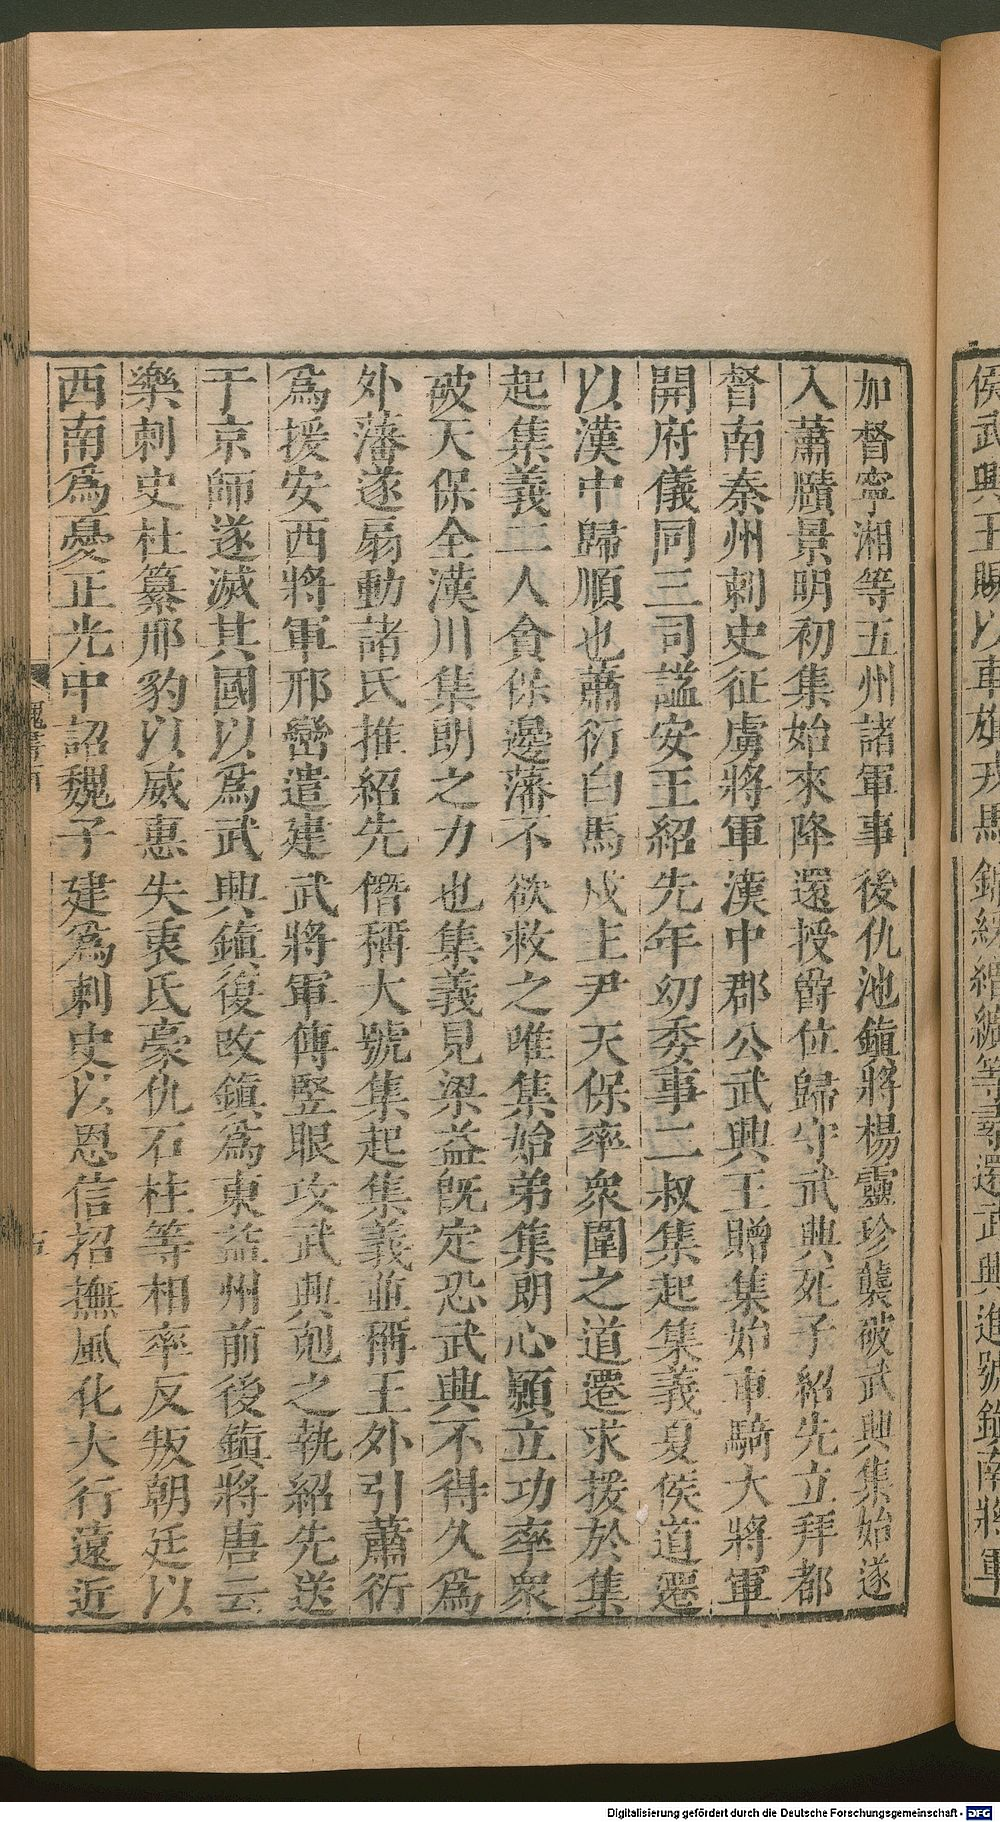 侯武興王賜以車旗戎馬錦紋繒纊等尋還武興進號鎮南將軍
加督寧湘等五州諸軍事後仇池鎮將楊靈珍襲破武興集始遂
入蕭賾景明初集始來降還授爵位歸守武興死子紹先立拜都
督南秦州刺史征虜將軍漢中郡公武興王贈集始車騎大將軍
開府儀同三司謚安王紹先年幼委事二叔集起集義夏侯道遷
以漢中歸順也蕭衍白馬戍主尹天保率衆圍之道遷求援於集
起集義二人貪保邊藩不欲救之唯集始弟集朗心願立功率衆
破天保全漢川集朗之力也集義見梁益旣定恐武興不得久爲
外藩遂扇動諸氏推紹先僭稱大號集起集義並稱王外引蕭衍
爲援安西將軍邢巒遣建武將軍傅竪眼攻武興尅之執紹先送
于京師遂滅其國以爲武興鎮復改鎮爲東益州前後鎮將唐云
樂刺史杜纂邢豹以威惠失衷氏豪仇石柱等相率反叛朝廷以
西南爲憂正光中詔魏子建爲刺史以恩信招撫風化大行遠近
魏書百
Digitalisierung gefördert durch die Deutsche Forschungsgemeinschaft - DFG